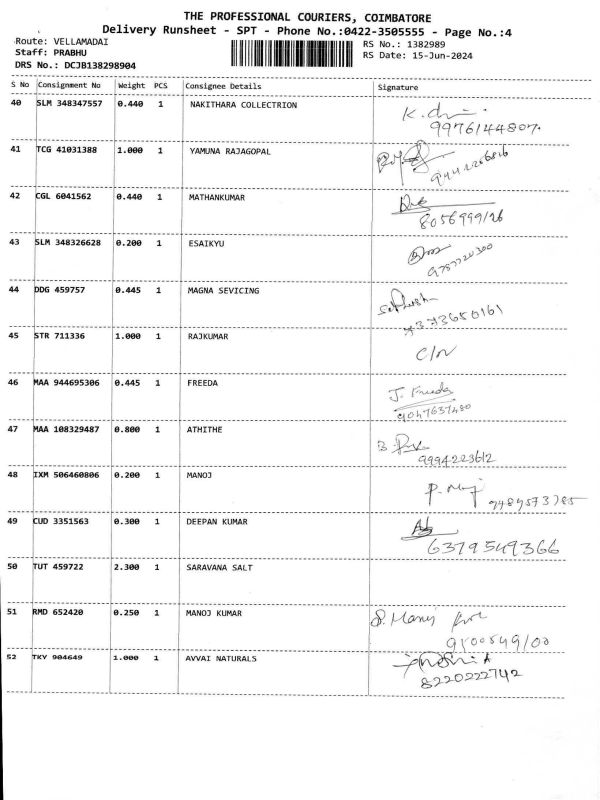 THE PROFESSIONAL COURIERS, COIMBATORE
Delivery Runsheet - SPT - Phone No.:0422-3505555 - Page No.:4
Route: VELLAMADAI
Staff: PRABHU
DRS No.: DCJB138298904
RS No.: 1382989
RS Date: 15-Jun-2024
S No Consignment No Weight PCS Consignee Details Signature
40 SLM 348347557 0.440 1 NAKITHARA COLLECTRION
9976144807.
41 TCG 41031388 1.000 1 YAMUNA RAJAGOPAL
42 CGL 6041562 0.440 1 MATHANKUMAR
8056999126
43 SLM 348326628 0.200 1 ESAIKYU
9787720300
44 DDG 459757 0.445 1 MAGNA SEVICING
45 STR 711336 1.000 1 RAJKUMAR
46 MAA 944695306 0.445 1 FREEDA
J. Freeda
9047637480
47 MAA 108329487 0.800 1 ATHITHE
9994223612
48 IXM 506460806 0.200 1 MANOJ
9489573785
49 CUD 3351563 0.300 1 DEEPAN KUMAR
6379549366
50 TUT 459722 2.300 1 SARAVANA SALT
51 RMD 652420 0.250 1 MANOJ KUMAR
52 TKV 904649 1.000 1 AVVAI NATURALS
8220222742